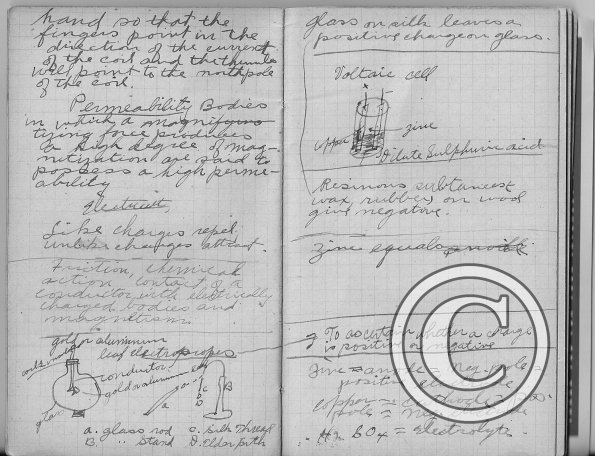 hand so that the
fingers point in the
direction of the current
of the coil and the thumb
will point to the north pole
of the coil.
Permeability Bodies
in which a magnifying
tizing force produces
a high degree of mag-
netization are said to
possess a high perme-
ability
Electricity,
Like charges repel
unlike charges attract.
Friction, chemical
action contact of a
conductor with electrically
charged bodies and
magnetism.
gold or aluminum
leaf electroscopes
conductor
gold or aluminum
glass
a
c
D
B
a. glass rod c. Silk Thread
B. " Stand D. Elder pith
glass on silk leaves a
positive charge on glass.
Voltaic cell
+ -
zinc
Dilute Sulphuric acid
Resinous substances(
wax, rubber) on wool
give negative.
Zinc equals
? To ascertain whether a charge
is positive or negative
Zinc = anode = neg. pole =
positive
copper = cathode = pos.
pole = negative
H2 SO4 = electrolyte.
C